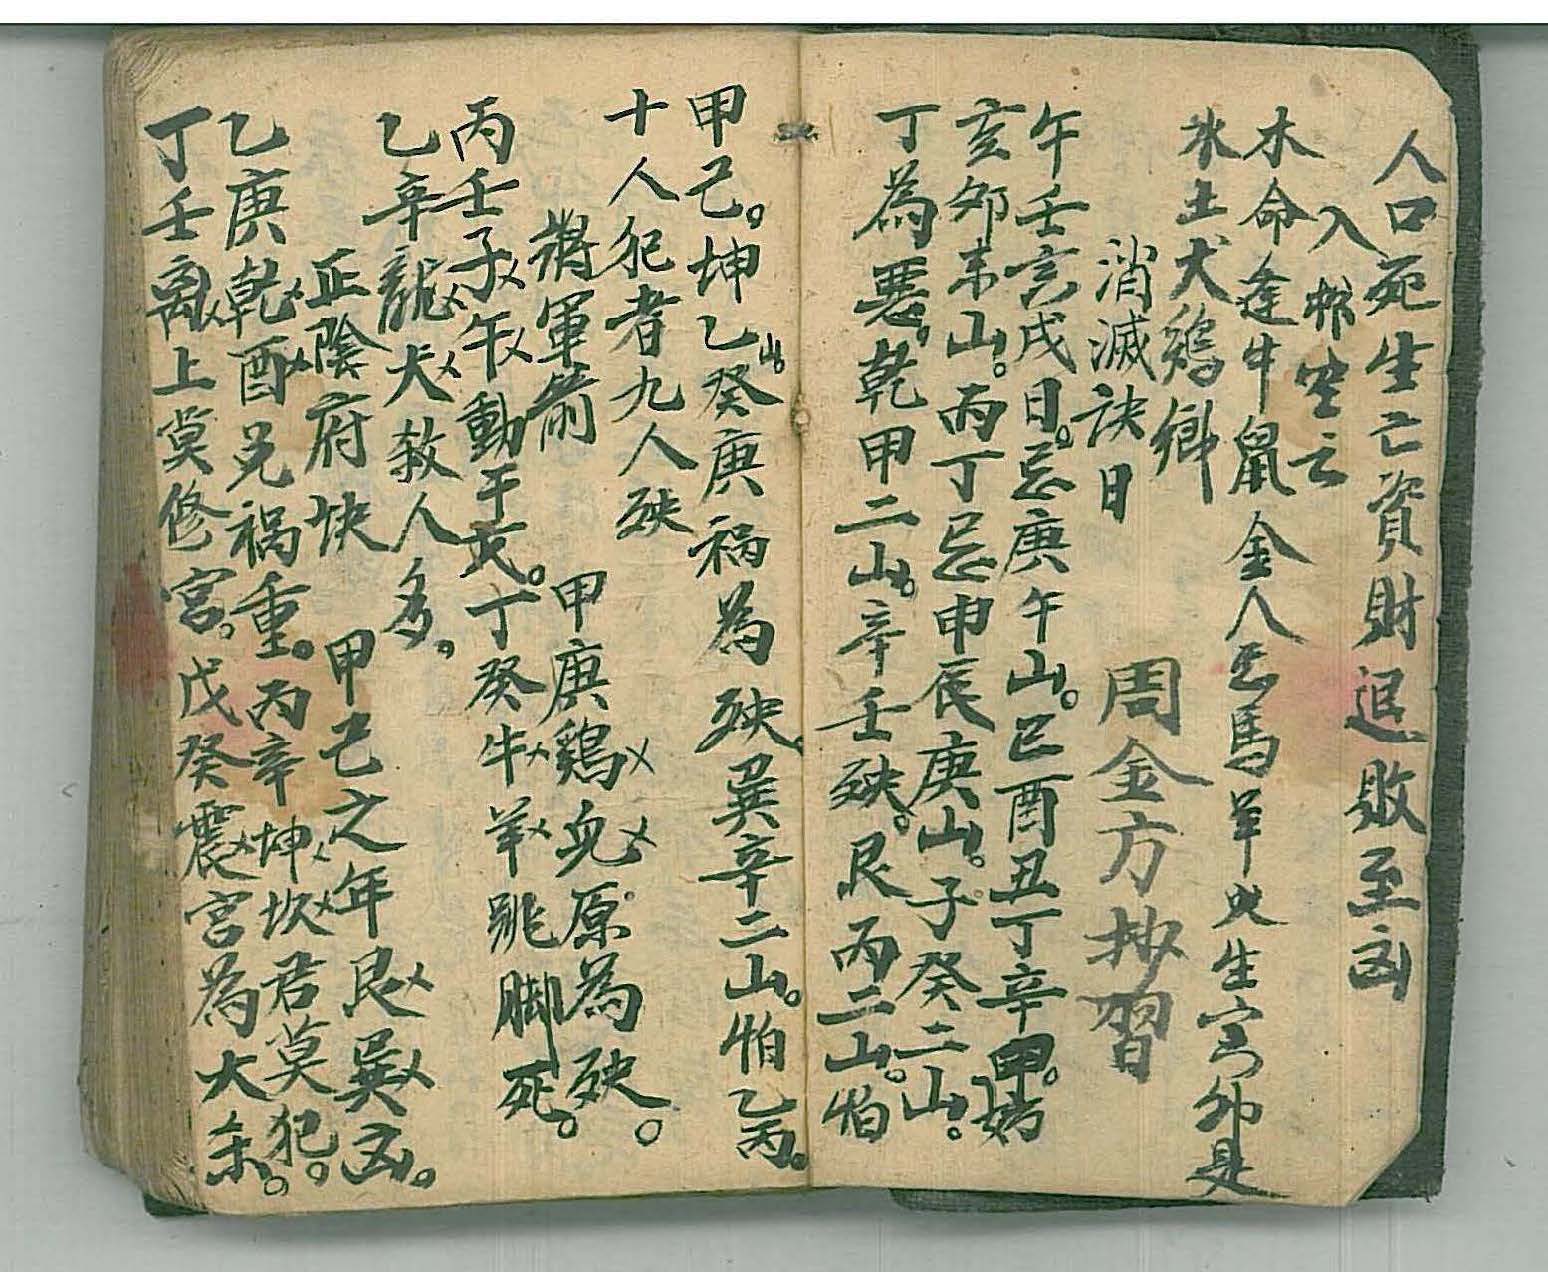 人口死生亡資財退敗至凶
入棺空亡
木命逢牛鼠金人马馬羊火生宮夘是
水土犬鷄鄉
消滅訣日 周金方抄習
午壬亥戌日。忌庚午山。巳酉丑丁辛甲。
亥夘未山。丙丁忌申辰庚山。子癸二山。
丁為悪。乾甲二山。辛壬殃。艮丙二山。怕
甲己。坤乙山。癸庚禍為殃巽辛二山。怕乙丙。
十人犯者九人殃
將軍箭 甲庚鷄兔原為殃。
丙壬子午動干戈。丁癸牛羊跳脚死。
乙辛龍犬殺人多。
正陰府快 甲己之年艮巽凶。
乙庚乾酉兑禍重。丙辛坤坎君莫犯。
丁壬离上莫修宮。戊癸震宮為大杀。